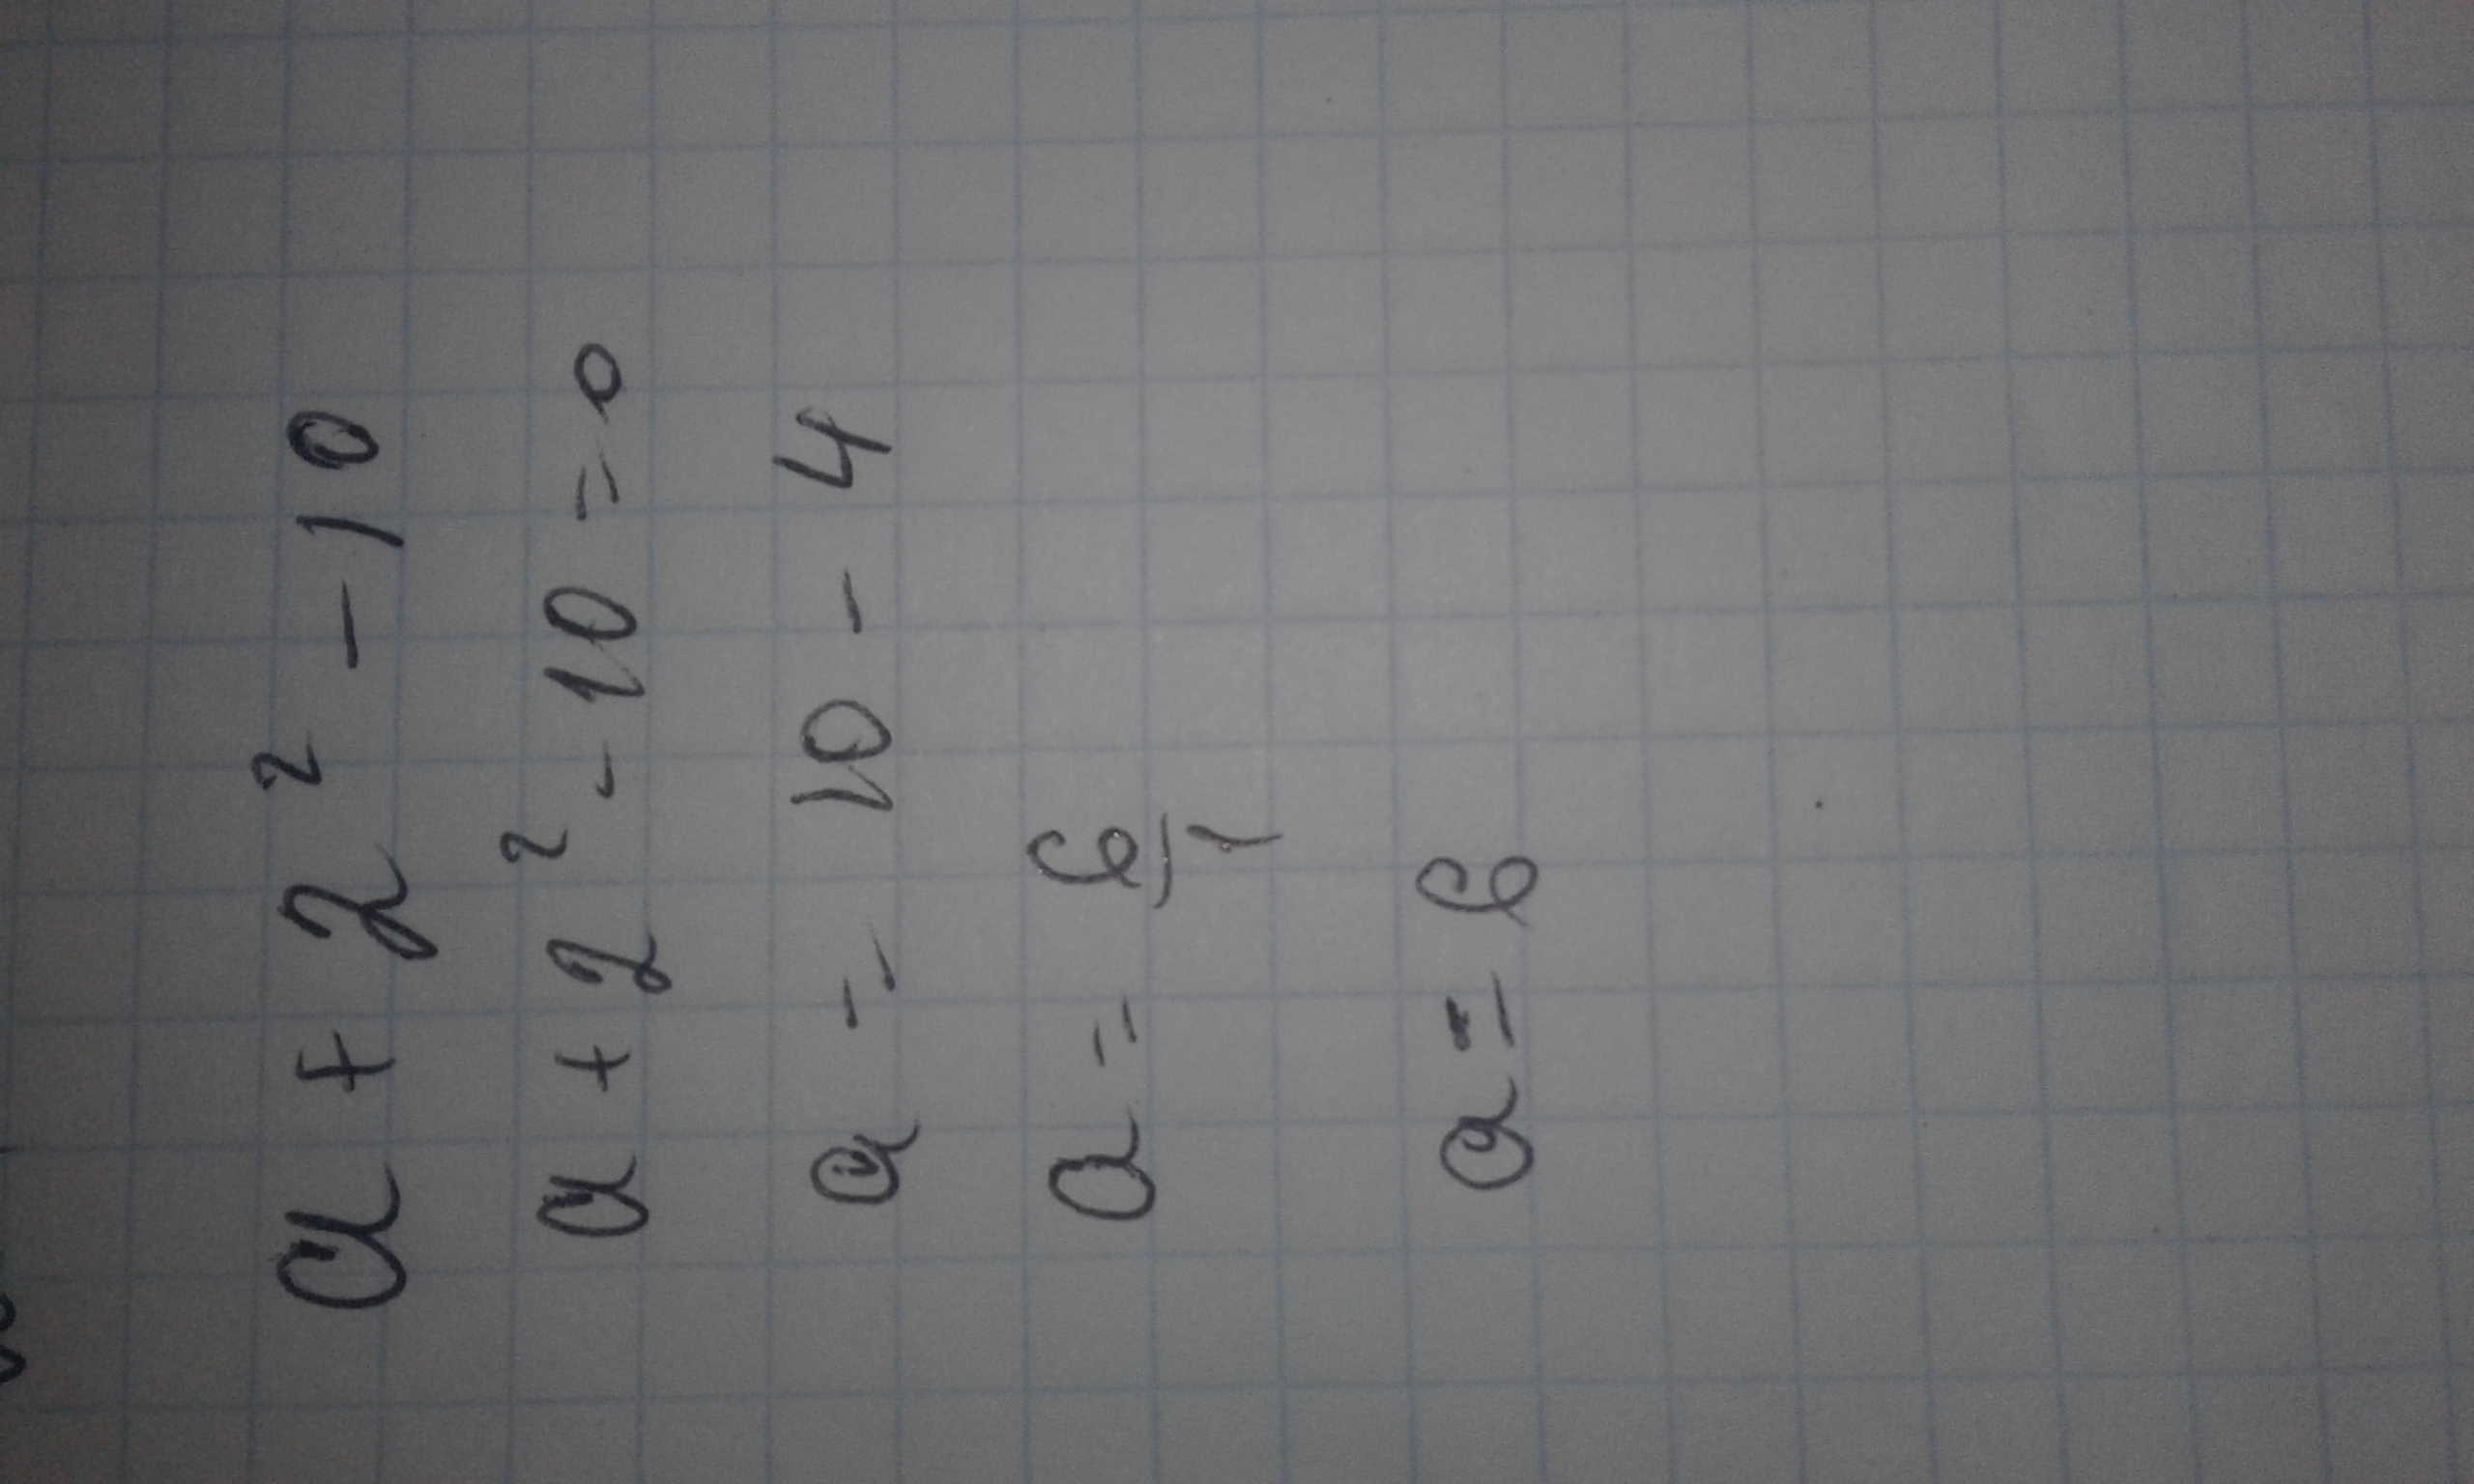 a + 2² - 10
a + 2² - 10 = 0
a = 10 - 4
a = 6/1
a = 6